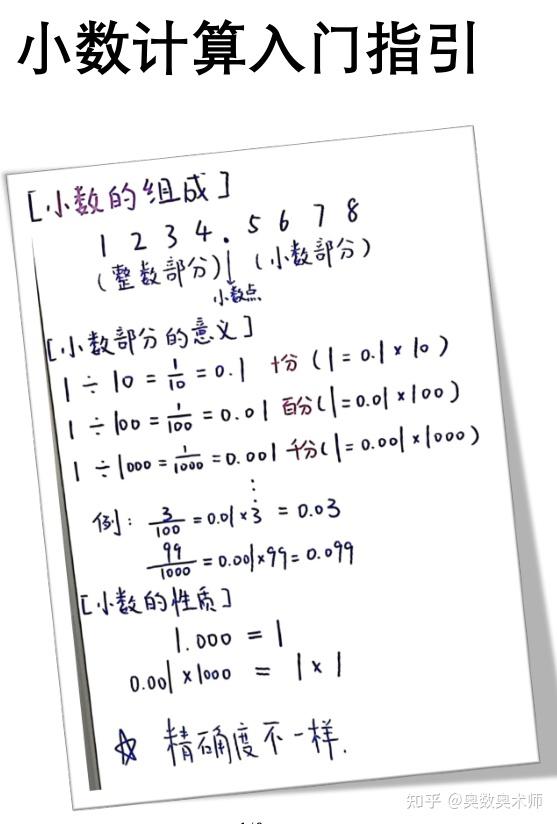 小数计算入门指引
[小数的组成]
1 2 3 4 . 5 6 7 8
(整数部分) (小数部分)
小数点
[小数部分的意义]
1÷10 = 1/10 = 0.1 十分 (1 = 0.1×10)
1÷100 = 1/100 = 0.01 百分 (1=0.01×100)
1÷1000 = 1/1000 = 0.001 千分 (1=0.001×1000)
⋮
例: 3/100 = 0.01×3 = 0.03
99/1000 = 0.001×99 = 0.099
[小数的性质]
1.000 = 1
0.001×1000 = 1×1
☆ 精确度不一样.
知乎 @奥数奥术师